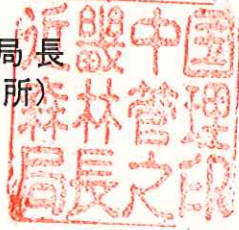 局長
所）
近畿中国
森林管理
局長之印